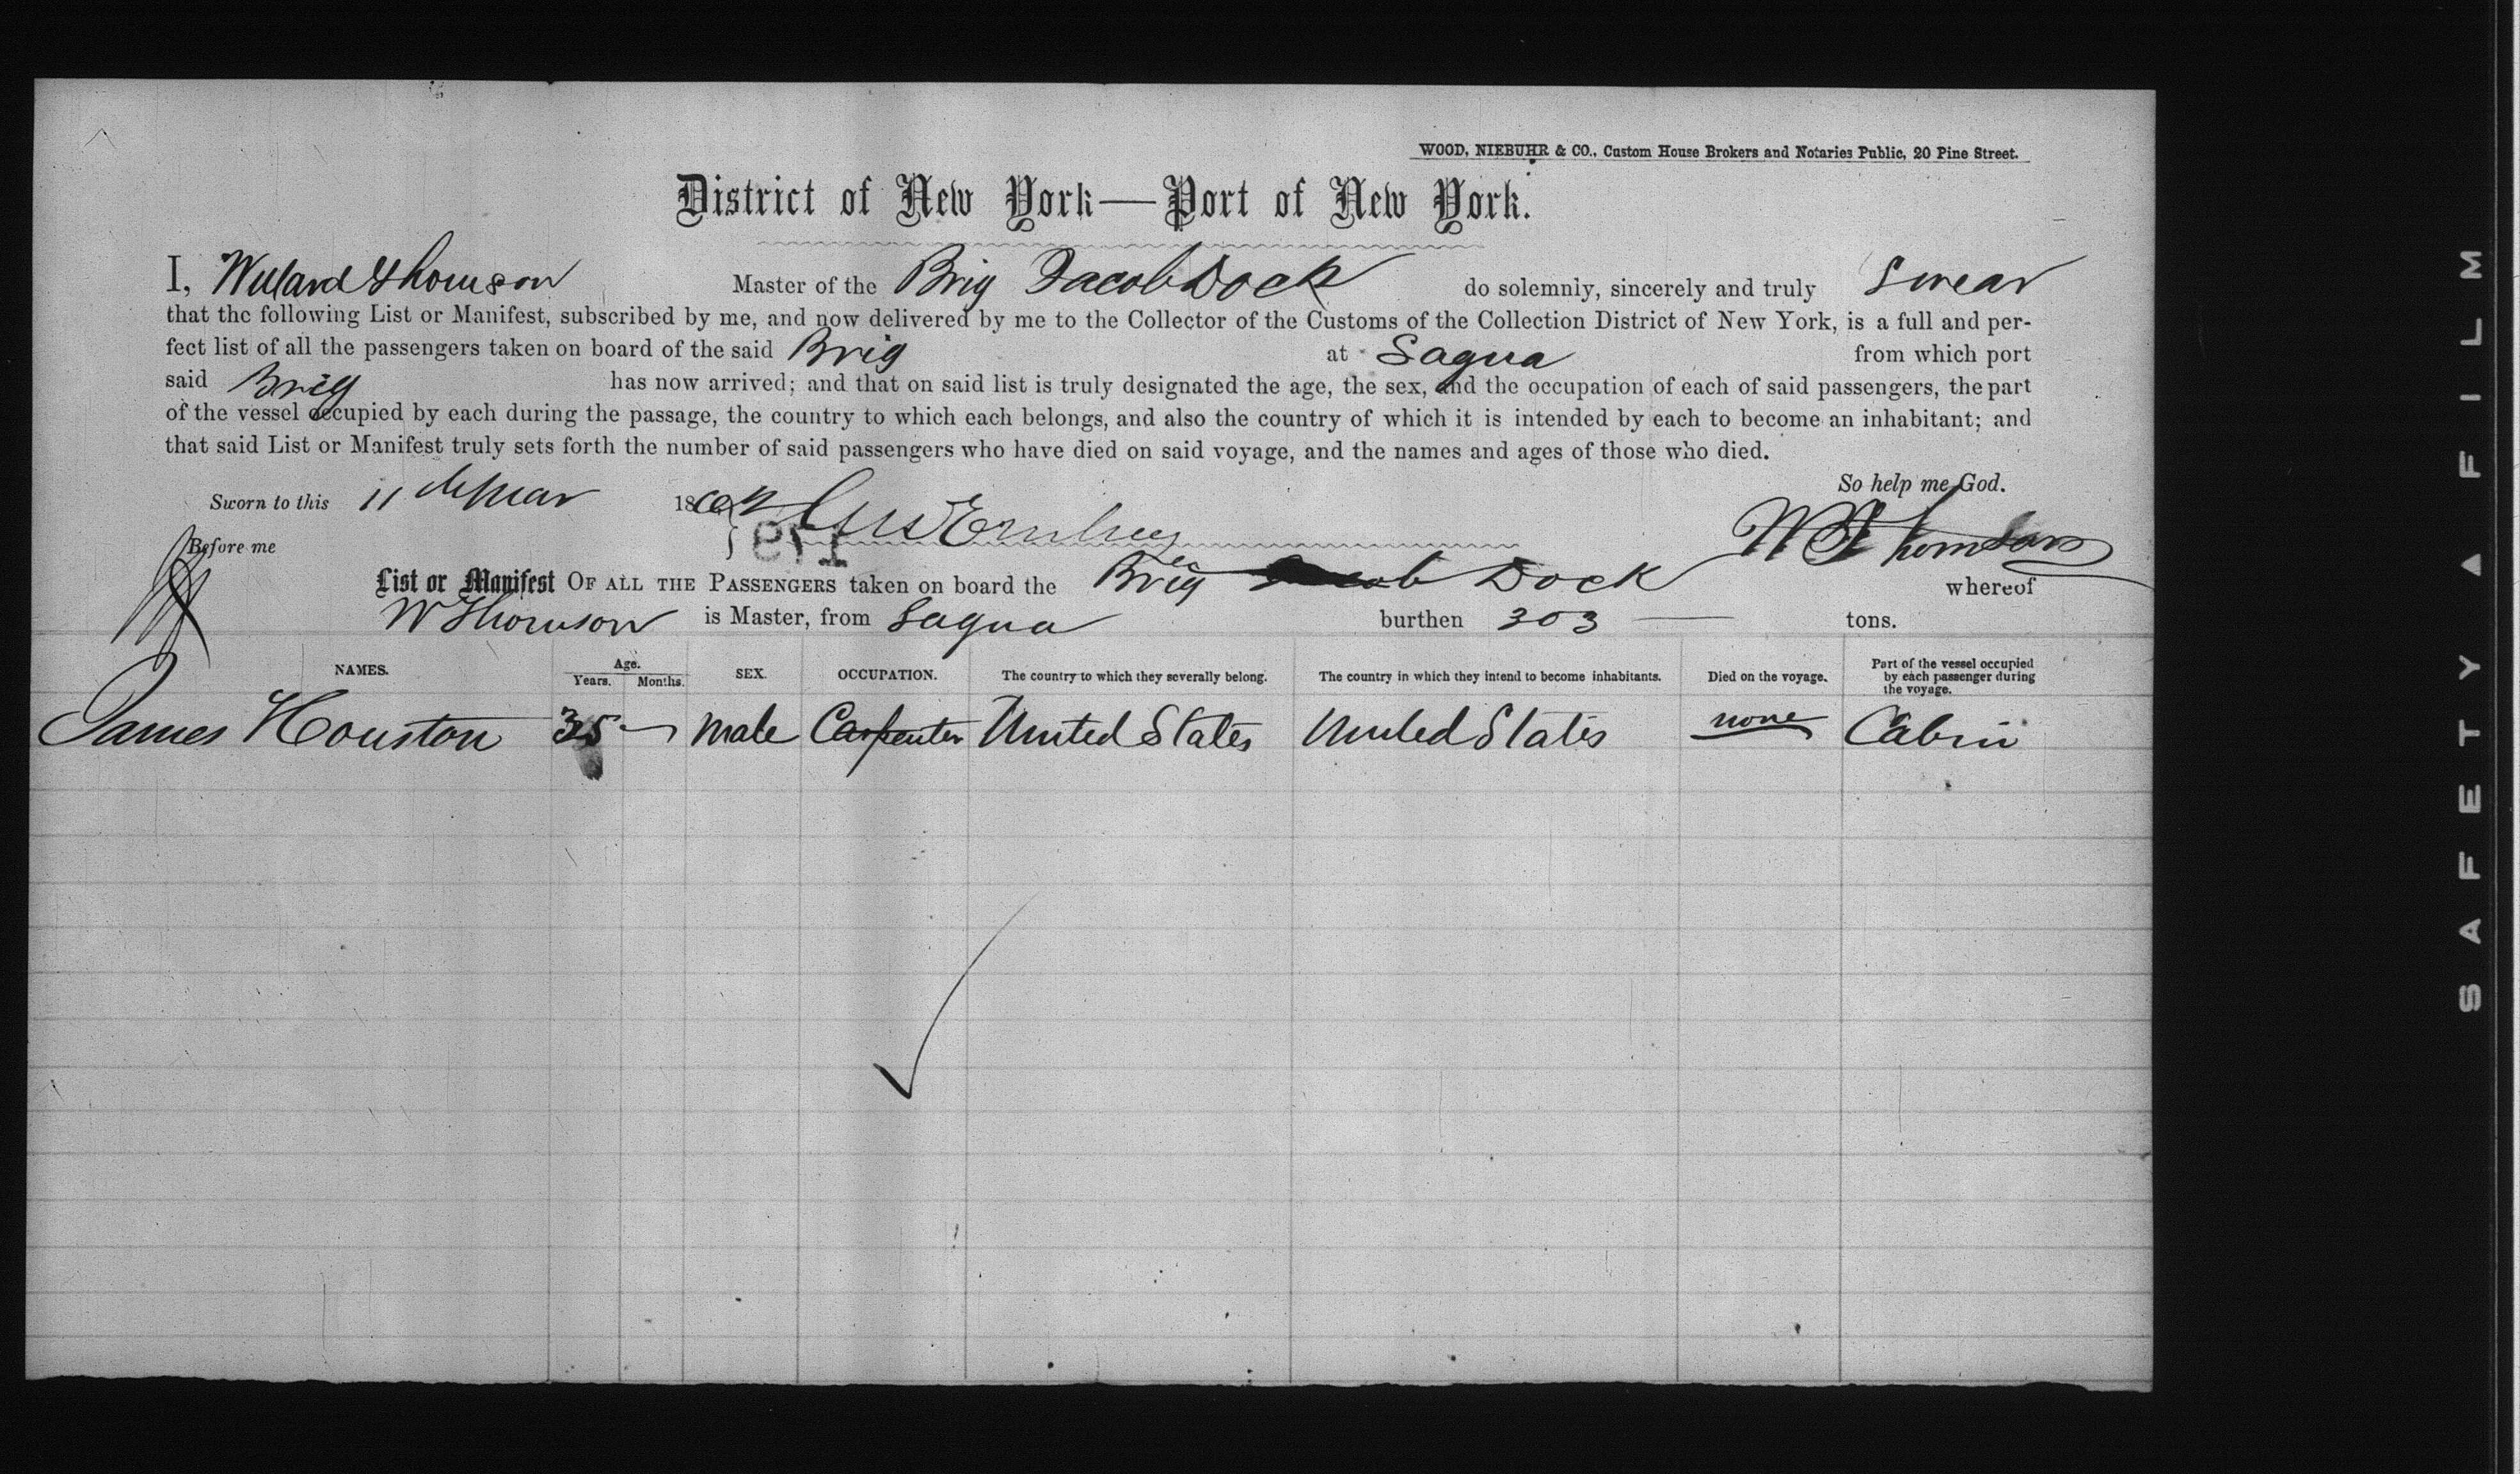 WOOD, NIEBUHR & CO., Custom House Brokers and Notaries Public, 20 Pine Street.
District of New York—Port of New York.
I, Willard Thomson Master of the Brig Jacob Dock do solemnly, sincerely and truly Swear
that the following List or Manifest, subscribed by me, and now delivered by me to the Collector of the Customs of the Collection District of New York, is a full and per-
fect list of all the passengers taken on board of the said Brig at Sagua from which port
said Brig has now arrived; and that on said list is truly designated the age, the sex, and the occupation of each of said passengers, the part
of the vessel occupied by each during the passage, the country to which each belongs, and also the country of which it is intended by each to become an inhabitant; and
that said List or Manifest truly sets forth the number of said passengers who have died on said voyage, and the names and ages of those who died.
So help me God.
Sworn to this 11th Mar 186
Before me
W Thomson
List or Manifest OF ALL THE PASSENGERS taken on board the Brig Jacob Dock whereof
W Thomson is Master, from Sagua burthen 303 tons.
NAMES. Age. Years. Months. SEX. OCCUPATION. The country to which they severally belong. The country in which they intend to become inhabitants. Died on the voyage. Part of the vessel occupied by each passenger during the voyage.
James Houston 35 male Carpenter United States United States none Cabin
SAFETY ▲ FILM